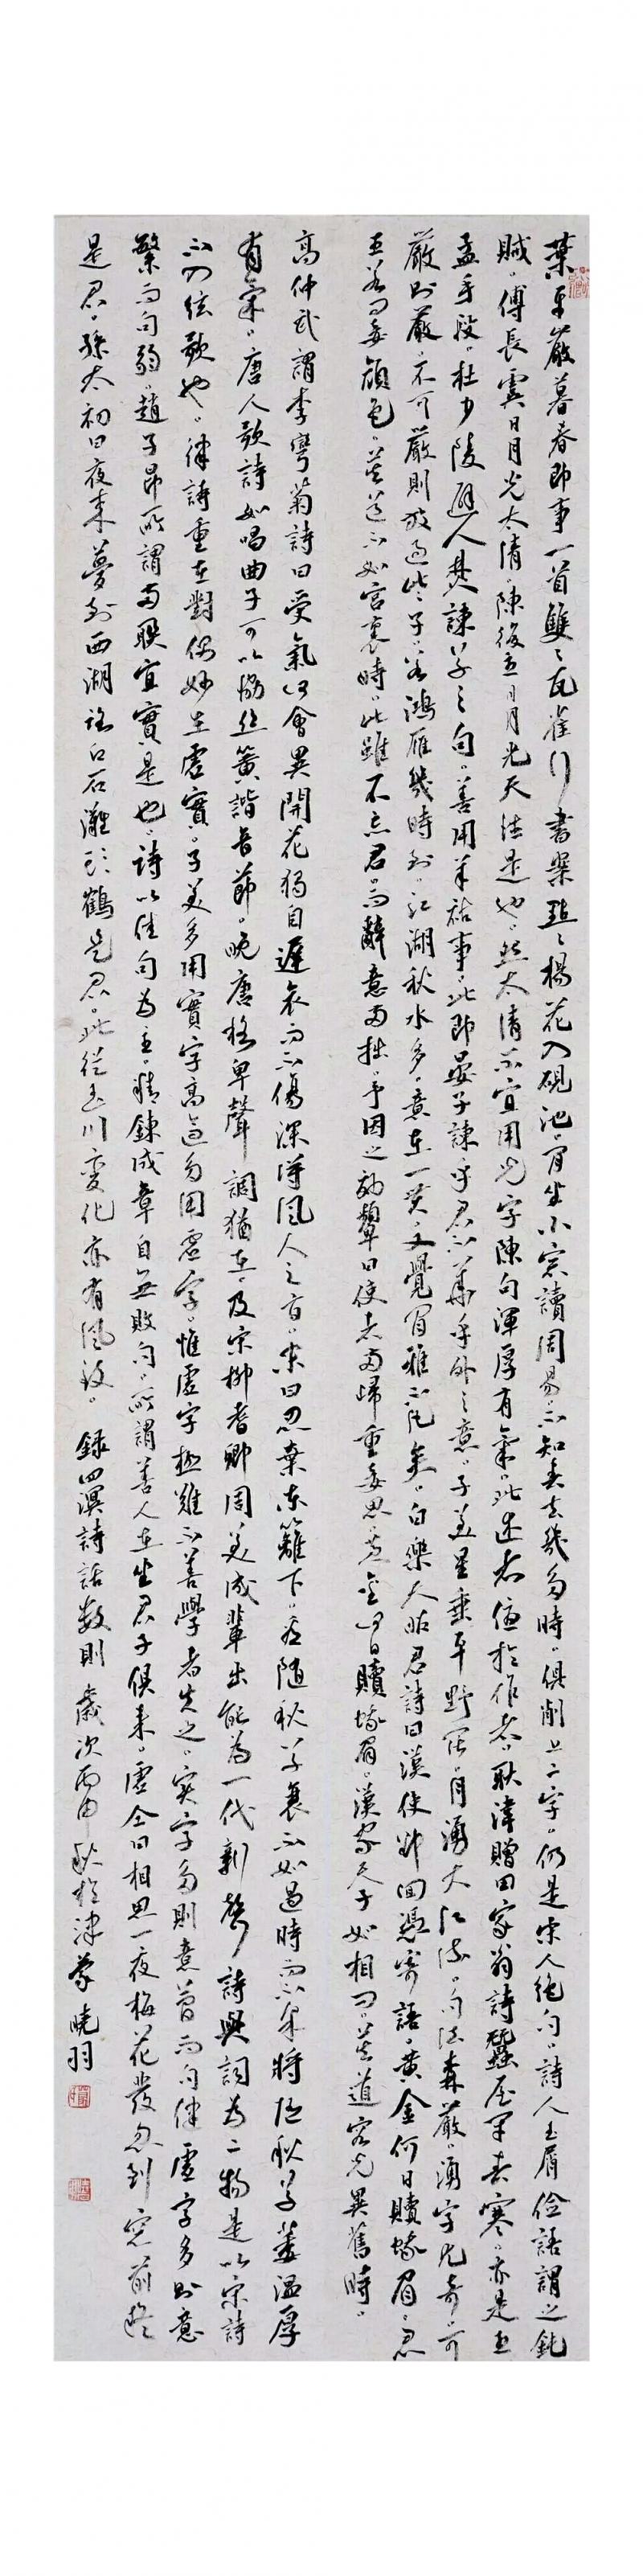 葉平巖暮春即事一首雙々瓦雀行書案點々楊花入硯池閒坐小窓讀周易不知春去幾多時俱削上二字仍是宋人絶句詩人玉屑儉語謂之鈍
賊傅長虞日月光太清陳後主日月光天德是也然太清不宜用光字陳句渾厚有氣此述者優於作者耿湋贈田家翁詩蠶屋早春寒亦是
孟手段杜少陵避人焚諫草之句善用羊祜事此即晏子諫乎君不華乎外之意子美星垂平野闊月湧大江流句法森嚴湧字尤奇可
嚴則嚴不可嚴則放過些子若鴻雁幾時到江湖秋水多意在一貫又覺閒雅不凡矣白樂天昭君詩曰漢使却回憑寄語黄金何日贖蛾眉君
王若問妾顔色莫道不如宮裏時此雖不忘君而辭意兩拙予因之効顰曰使者南歸重妾思黄金何日贖蛾眉漢家天子如相問莫道容光異舊時
高仲武謂李穹菊詩曰受氣何曾異開花獨自遲哀而不傷深得風人之旨末曰忍棄東籬下看隨秋草衰不如過時而不采將隨秋草萎溫厚
有氣唐人歌詩如唱曲子可以協絲簧諧音節晚唐格卑聲調猶在及宋柳耆卿周美成輩出能為一代新聲詩與詞為二物是以宋詩
不可弦歌也律詩重在對偶妙在虛實子美多用實字高適多用虛字惟虛字極難不善學者失之實字多則意簡而句健虛字多則意
繁而句弱趙子昂所謂兩聯宜實是也詩以佳句為主精錬成章自無敗句所謂善人在坐君子俱来盧仝曰相思一夜梅花發忽到窓前疑
是君孫太初曰夜来夢到西湖路白石灘頭鶴是君此從玉川變化亦有風致録四溟詩話數則歲次丙申秋於津蒙曉羽